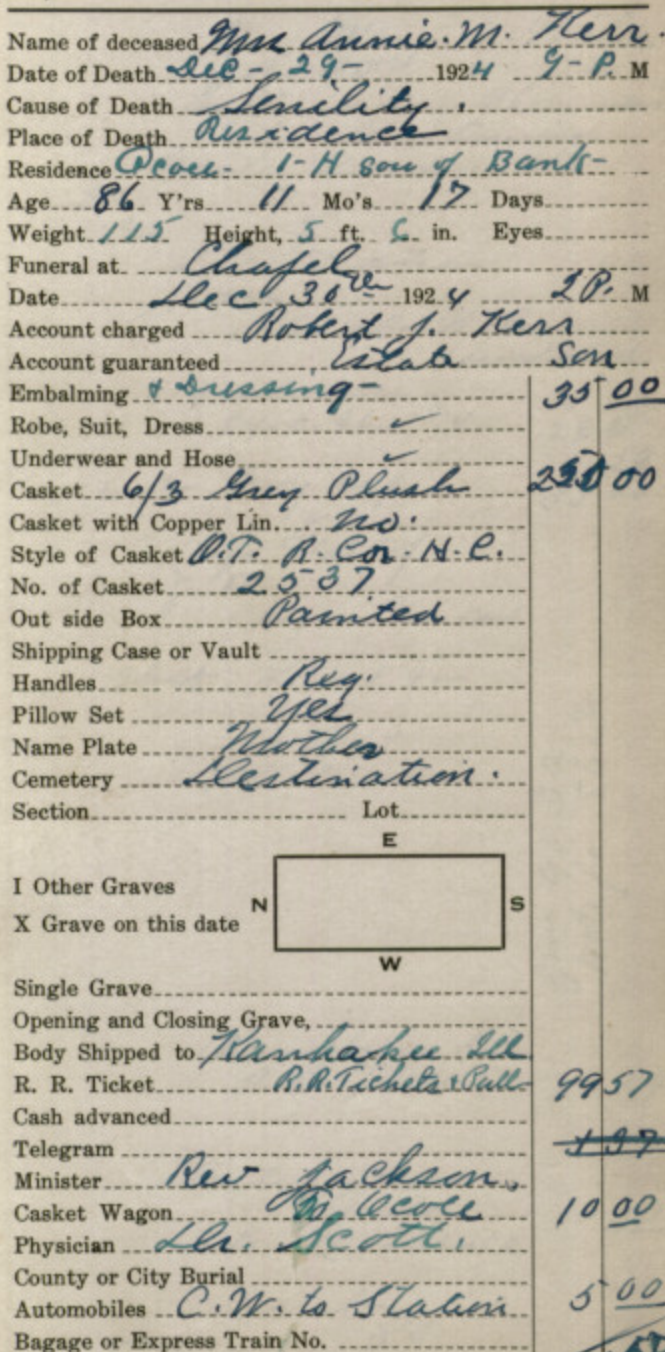 Name of deceased Mrs Annie. M. Kerr.
Date of Death Dec - 29 - 1924 9-P. M
Cause of Death Senility.
Place of Death Residence
Residence Ocoee - 1-H sou of Bank -
Age 86 Y'rs 11 Mo's 17 Days
Weight 115 Height, 5 ft. 6 in. Eyes
Funeral at Chapel
Date Dec 30th 1924 2 P. M
Account charged Robert J. Kerr
Account guaranteed Estate Son
Embalming & Dressing - 35 00
Robe, Suit, Dress ✓
Underwear and Hose ✓
Casket 6/3 Grey Plush 00
Casket with Copper Lin. No.
Style of Casket O.T. R. Cor. H.C.
No. of Casket 2537
Out side Box Painted
Shipping Case or Vault
Handles Reg.
Pillow Set Yes
Name Plate Mother
Cemetery Destination.
Section Lot
E
I Other Graves
N S
X Grave on this date
W
Single Grave
Opening and Closing Grave,
Body Shipped to Kankakee Ill
R. R. Ticket R.R. Tickets & Pull- 99 57
Cash advanced
Telegram
Minister Rev Jackson.
Casket Wagon to Ocoee 10 00
Physician Dr. Scott.
County or City Burial
Automobiles C.W. to Station 5 00
Bagage or Express Train No.